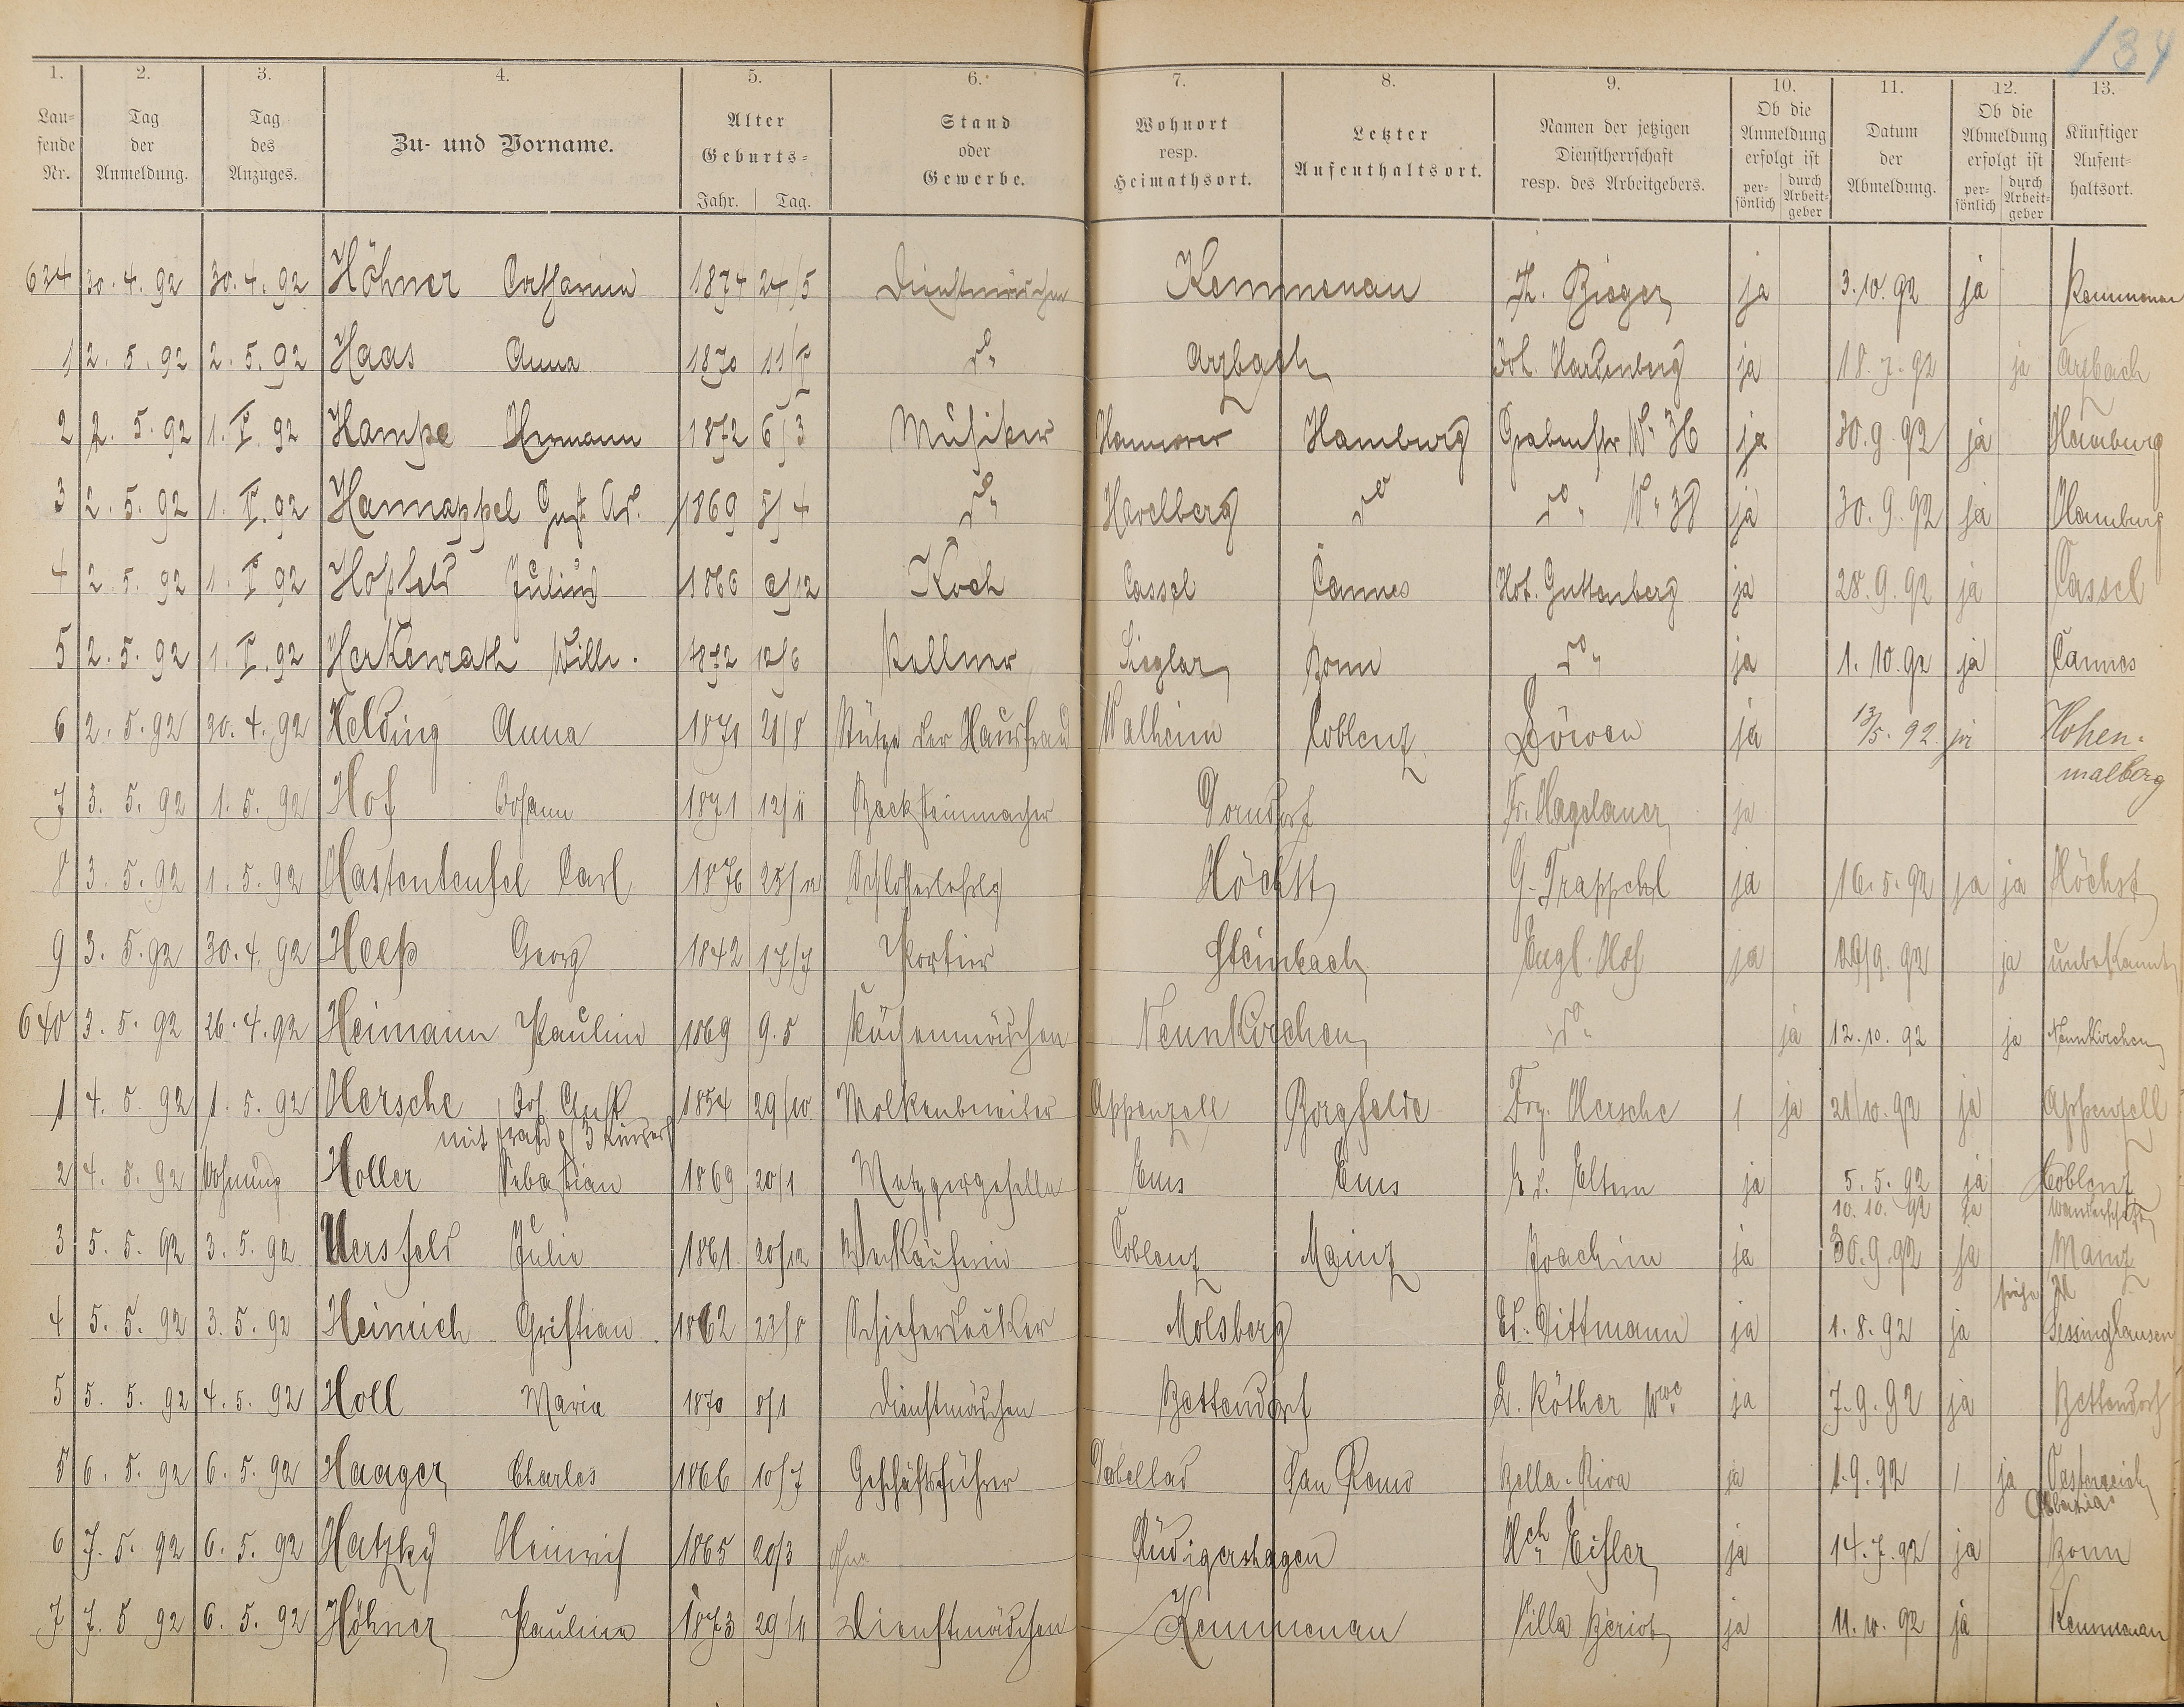 134
1. 2. 3. 4. 5. 6. 7. 8. 9. 10. 11. 12. 13.
Lau-fende Nr. Tag der Anmeldung. Tag des Anzuges. Zu- und Vorname. Alter Geburts- Jahr. Tag. Stand oder Gewerbe. Wohnort resp. Heimathsort. Letzter Aufenthaltsort. Namen der jetzigen Dienstherrschaft resp. des Arbeitgebers. Ob die Anmeldung erfolgt ist per-sönlich durch Arbeit-geber Datum der Abmeldung. Ob die Abmeldung erfolgt ist per-sönlich durch Arbeit-geber Künftiger Aufent-haltsort.
634 30.4.92 30.4.92 Höhner Catharina 1874 24/5 Dienstmädchen Kemmenau H. Bieger ja 3.10.92 ja Kemmenau
1 2.5.92 2.5.92 Haas Anna 1870 11/V do Arzbach Joh. Hardenberg ja 18.7.92 ja Arzbach
2 2.5.92 1.V 92 Hampe Hermann 1872 6/3 Musiker Hannover Hamburg Grabenstr No 36 ja 30.9.92 ja Hamburg
3 2.5.92 1.V.92 Hannappel Gust. Ad. 1869 5/4 do Havelberg do do No 38 ja 30.9.92 ja Hamburg
4 2.5.92 1.V 92 Hoßfeld Julius 1866 2/12 Koch Cassel Cannes Hot. Guttenberg ja 28.9.92 ja Cassel
5 2.5.92 1.V.92 Herkenrath Wilh. 1872 12/6 Kellner Sieglar Bonn do ja 1.10.92 ja Cannes
6 2.5.92 30.4.92 Helding Anna 1871 21/8 Stütze der Hausfrau Walheim Coblenz Löwen ja 13/5.92 ja Hohen-malberg
7 3.5.92 1.5.92 Hof Johann 1871 12/11 Backsteinmacher Dorndorf Fr. Hagelauer ja
8 3.5.92 1.5.92 Hastenteufel Carl 1876 Schlosserlehrlg Höchst G. Trappehl ja 16.5.92 ja ja Höchst
9 3.5.92 30.4.92 Heeß Georg 1842 17/7 Portier Steinbach Engl. Hof ja ja unbekannt
640 3.5.92 26.4.92 Heimann Pauline 1869 9.5 Küchenmädchen Neunkirchen do ja 12.10.92 ja Neunkirchen
1 4.5.92 1.5.92 Hersche Joh. Ant. 1854 29/10 Molkenbereiter Appenzell Borgfelde Frz. Hersche 1 ja 21/10.92 ja Appenzell
mit Frau & 3 Kinder
2 4.5.92 Wohnung Holler Sebastian 1869 20/1 Metzgergeselle Ems Ems b. d. Eltern ja 5.5.92 ja Coblenz
10.10.92 ja Wanderschaft
3 5.5.92 3.5.92 Hersfeld Julie 1861 20/12 Verkäuferin Coblenz Mainz Joachim ja 30.9.92 ja Mainz
4 5.5.92 3.5.92 Heinrich Christian 1862 23/8 Schieferdecker Molsberg Ed. Dittmann ja 1.8.92 ja Sessinghausen
5 5.5.92 4.5.92 Holl Maria 1870 8/1 Dienstmädchen Bettendorf L. Röther Wwe ja 7.9.92 ja Bettendorf
5 6.5.92 6.5.92 Haager Charles 1866 10/7 Geschäftsführer San Remo Bella-Riva ja 1.9.92 1 ja Oesterreich
Abbazia
6 7.5.92 6.5.92 Hatzky Heinrich 1865 20/3 ohne Rüdigershagen Hch Eisler ja 14.7.92 ja Bonn
7 7.5 92 6.5.92 Höhner Pauline 1873 29/11 Dienstmädchen Kemmenau Villa Beriot ja 11.10.92 ja Kemmenau